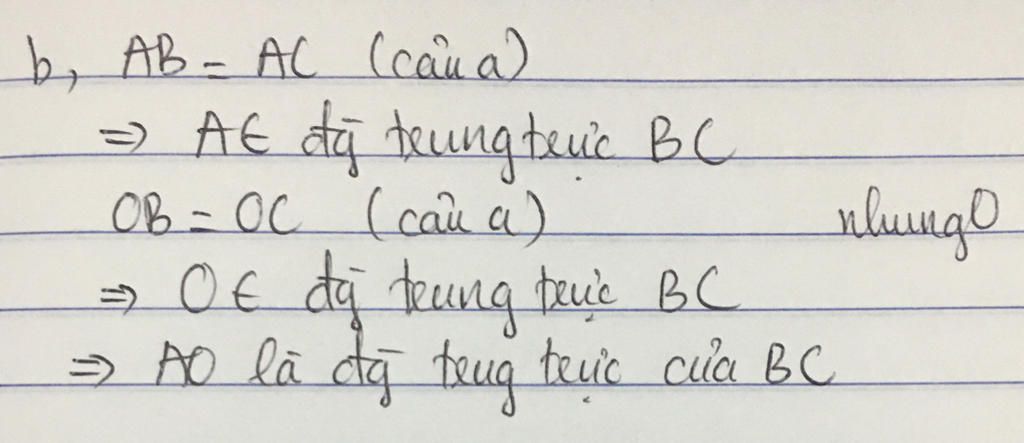 b, AB = AC (câu a)
=> A ∈ đg trung trực BC
OB = OC (câu a) nhungO
=> O ∈ đg trung trực BC
=> AO là đg trug trực của BC